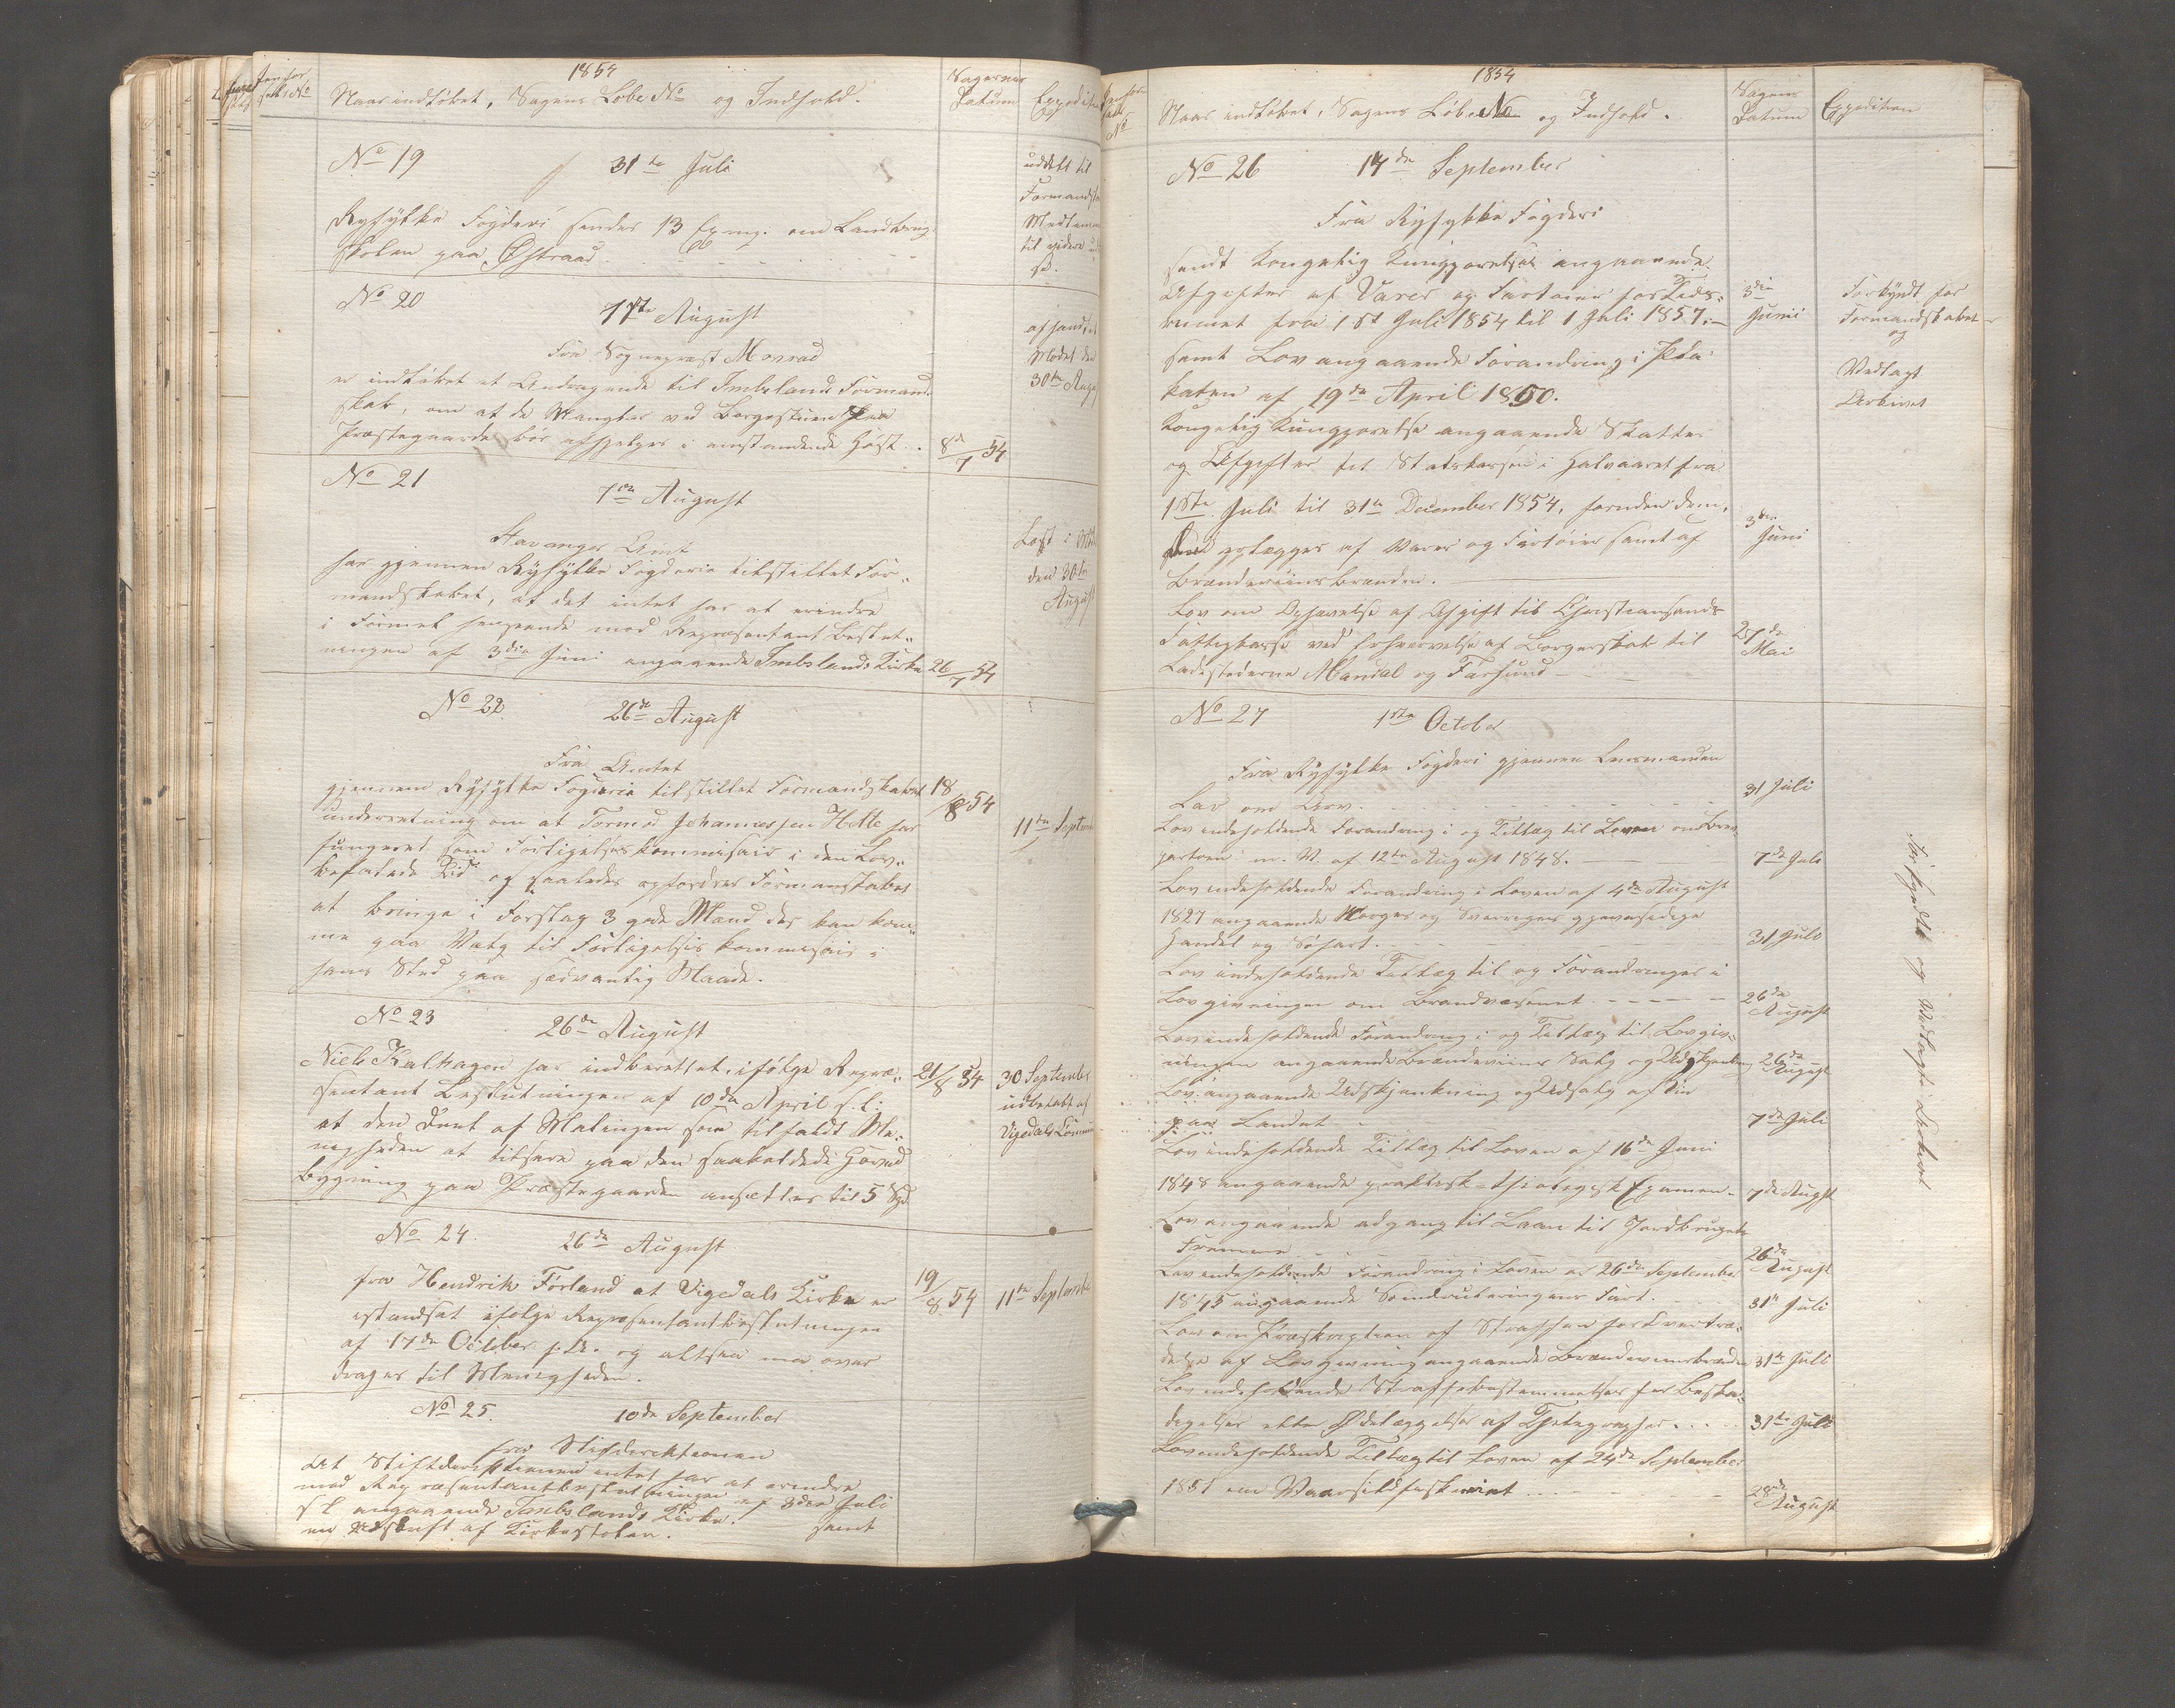 1854
Naar indløbet, Sagens Løbe No og Indhold.
Sagernes Datum
No 19 31te Juli
Ryfylke Fogderi sender 13 Expl. om Landbrug-
skolen paa Østraad
uddelt til
Formandsk
Medlemm
til videre
No 20 7de August
Fra Sognepræst Monrad
er indløbet et Andragende til Imslands Formand-
skab, om at de Mangler ved Borgestuen paa
Præstegaarde bør afhjelpes i anstaaende Høst.
8de/7 54
Mødet den
30te Aug
No 21 7de August
Stavanger Amt
har gjennem Ryfylke Fogderie tilstillet For-
mandskabet, at det intet har at erindre
i Formel henseende mod Repræsentant Beslut-
ningen af 3die Juni angaaende Imslands Kirke
26/7 54
Løst i Møde
den 30te
August
No 22 26de August
Fra Amtet
gjennem Ryfylke Fogderie tilstillet Formandskabet
Underretning om at Tormod Johannessen Hette har
fungeret som Forligelseskommisair i den Lov-
befalede Tid og saaledes opfordres Formanskabet
at bringe i Forslag 3 gode Mænd der kan kom-
me paa Valg til Forligelsis kommisair i
hans Sted paa sædvanlig Maade.
18/8 54
11te Septem
No 23 26de August
Niels Kalhagen har indberettet ifølge Repræ-
sentant Beslutningen af 10de April f. l:
at den Deel af Malingen som tilfaldt Me-
nigheden at tilsvare paa den saakaldede Hoved
Bygning paa Præstegaarden ansættes til 5 Spd
21/8 54
30 September
udbetalt af
Vigedals
No 24 26de August
fra Hendrik Førland at Vigedals Kirke er
istandsat ifølge Repræsentantbeslutningen
af 17de October f. A. og altsaa maa over
drages til Menigheden.
19/8 54
11te September
No 25. 10de September
fra Stifdirektionen
At Stiftdirektionen intet har at erindre
mod Repræsentantbeslutningen af 3die Juli
s l angaaende Imslands Kirke. samt
en Udskrift af Kirkestolen.
1854
Naar indløbet, Sagens Løbe No og Indhold.
Sagens Datum
Expedition
No 26 14de September
Fra Ryfylke Fogderi
sendt Kongelig Kungjørelse angaaende
Afgifter af Varer og Fartøier for Tids-
rummet fra 1st Juli 1854 til 1 Juli 1857.-
samt Lov angaaende Forandring i Pla-
katen af 19de April 1850.
Kongelig Kungjørelse angaaende Skatter
og Afgifter til Statskassen i Halvaaret fra
1ste Juli til 31te December 1854, foruden dem,
der erlægges af Varer og Fartøier samt af
Brændeviinsbrænden.
Lov om Ophævelse af Afgift til Christiansands
Fattigkasse ved Erhvervelse af Borgerskab til
Ladestederne Mandal og Farsund
3die
Junii
3die
Juni
27de
Mai
Forkyndt for
Formandskabet
og
Vedlagt
Arkivet
No 27 1ste October
Fra Ryfylke Fogderi gjennem Lensmanden
Lov om Arv. 31 Juli
Lov indeholdende Forandring i og Tillæg til Loven om Bræv
portoen m. V. af 12te August 1848. 7de Juli
Lov indeholdende Forandring i Loven af 4de August
1827 angaaende Norges og Sverriges gjensidige
Handel og Søfart. 31 Juli
Lov indeholdende Tillæg til og Forandringer i
Lovgivningen om Brandvæsenet 26de August
Lov indeholdende Forandring i og Tillæg til Lovgiv-
ningen angaaende Brændeviins Salg og Udskjænkning 26de August
Lov angaaende Udskjænkning og Udsalg af Viin
paa Landet 7de Juli
Lov indeholdende Tillæg til Loven af 16de Juni
1848 angaaende praktisk-theologisk Examen. 7de Augst
Lov angaaende adgang til Laan til Jordbrugets
Fremme 26de August
Lov indeholdende Forandring i Loven af 26de September
1845 angaaende Svindruteringens Fart. 31te Juli
Lov om Præskription af Straffen for Overtræ-
delse af Lovgivning angaaende Brændeviinsbrænden 31te Juli
Lov indeholdende Straffebestemmelser for Beska-
digelse eller Ødelæggelse af Telegrapher 31te Juli
Lov indeholdende Tillæg til Loven af 24de September
1851 om Vaarsildfiskeriet 28de August
Forkyndt og Vedlagte Arkivet